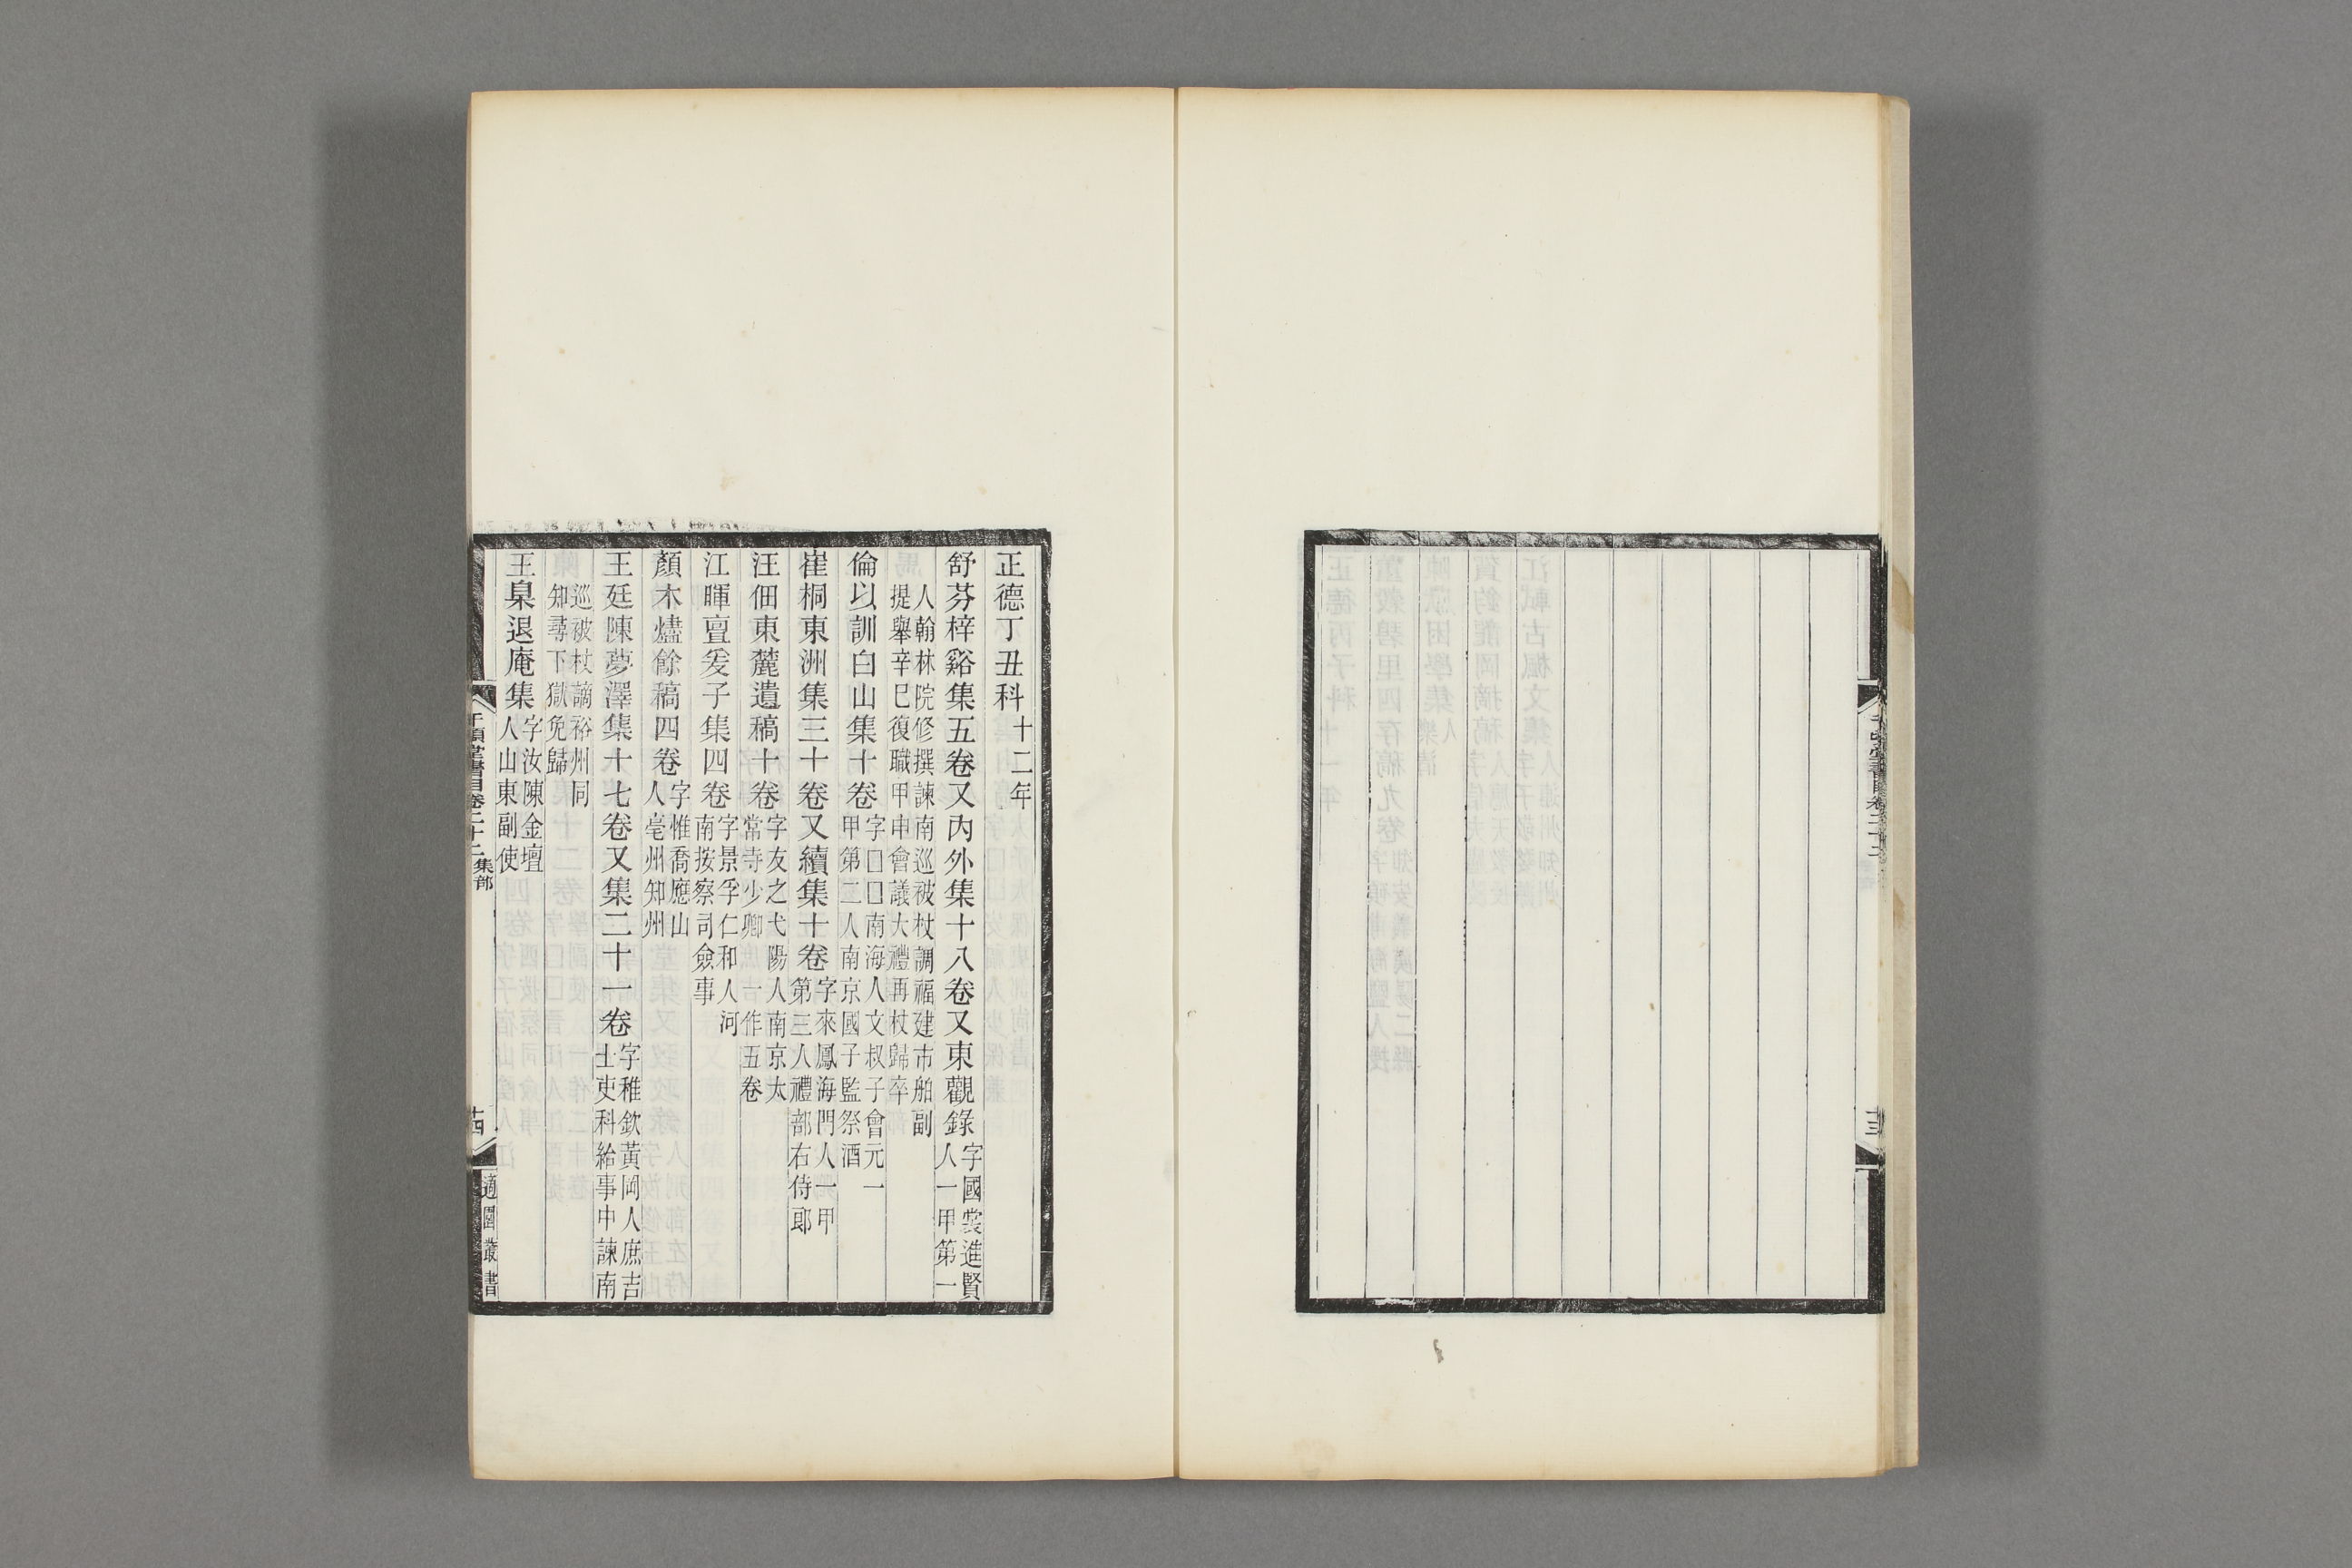 正德丁丑科十二年
舒芬梓谿集五卷又內外集十八卷又東觀錄字國裳進賢人一甲第一
人翰林院修撰諫南巡被杖調福建市舶副提舉辛巳復職甲申會議大禮再杖歸卒
倫以訓白山集十卷字□□南海人文叔子會元一甲第二人南京國子監祭酒
崔桐東洲集三十卷又續集十卷字來鳳海門人一甲第三人禮部右侍郎
汪佃東麓遺稿十卷字友之弋陽人南京太常寺少卿一作五卷
江暉亶爰子集四卷字景孚仁和人河南按察司僉事
顏木燼餘稿四卷字惟喬應山人亳州知州
王廷陳夢澤集十七卷又集二十一卷字稚欽黃岡人庶吉士吏科給事中諫南
巡被杖謫裕州同知尋下獄免歸
王臬退庵集字汝陳金壇人山東副使
千頃堂書目卷二十二集部
十四
適園叢書
千頃堂書目卷二十二
十三